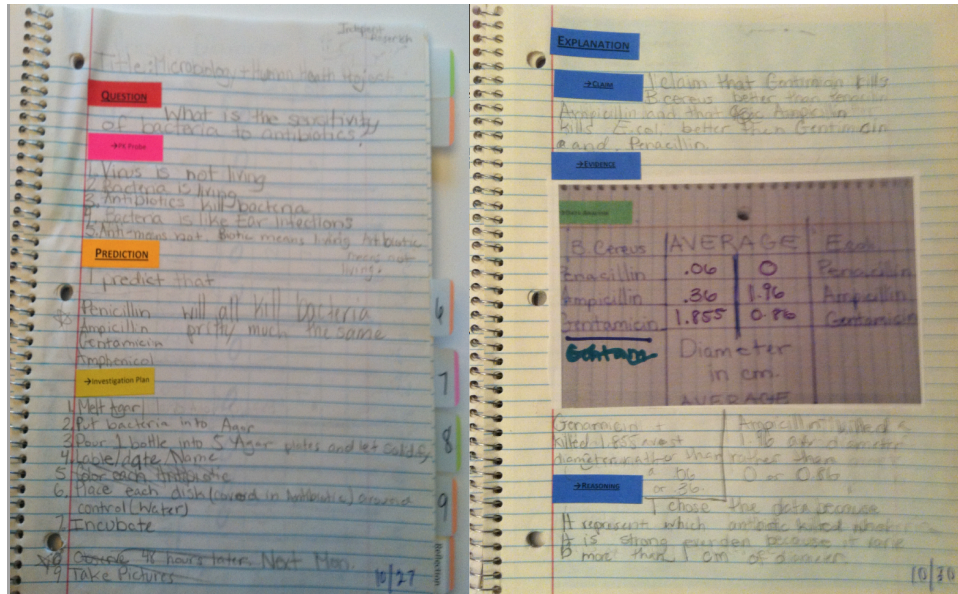 Title: Microbiology + Human Health Project
QUESTION
What is the sensitivity
of bacteria to antibiotics?
→PK Probe
1. Virus is not living
2. Bacteria is living
3. Antibiotics kill bacteria
4. Bacteria is like Ear infections
5. Anti means not. Biotic means living Antibiotic
means not
living.
PREDICTION
I predict that
Penicillin will all kill bacteria
Ampicillin pritty much the same
Gentamicin
Amphenicol
→Investigation Plan
1. Melt Agar
2. Put bacteria into Agar
3. Pour 1 bottle into 5 Agar plates and let solidify
4. Lable/date/Name
5. Color each Antibiotic
6. Place each dish (coverd in Antibiotic) around
control (Water)
7. Incubate
8. Observe 48 hours later. Next Mon.
9. Take Pictures
10/27
6
7
8
9
Reflection
EXPLANATION
→CLAIM
I claim that Gentamicin kills
B. cereus better than Penicillin
Ampicillin had that Ampicilin
kills E.coli better then Gentimicin
and Penacillin.
→EVIDENCE
B. Cereus AVERAGE E.coli
Penacillin .06 0 Penacillin
Ampicillin .36 1.96 Ampicillin
Gentamicin 1.855 0.86 Gentamicin
Gentam
Diameter
in cm.
AVERAGE
killed 1.855
Ampicillin killed a
1.96 diameter
diameter rather than rather than
.06 0 or 0.86
or .36.
→REASONING
I chose the data because
It represent which antibiotic killed
It is strong because it varie
more then 1 cm of
10/30